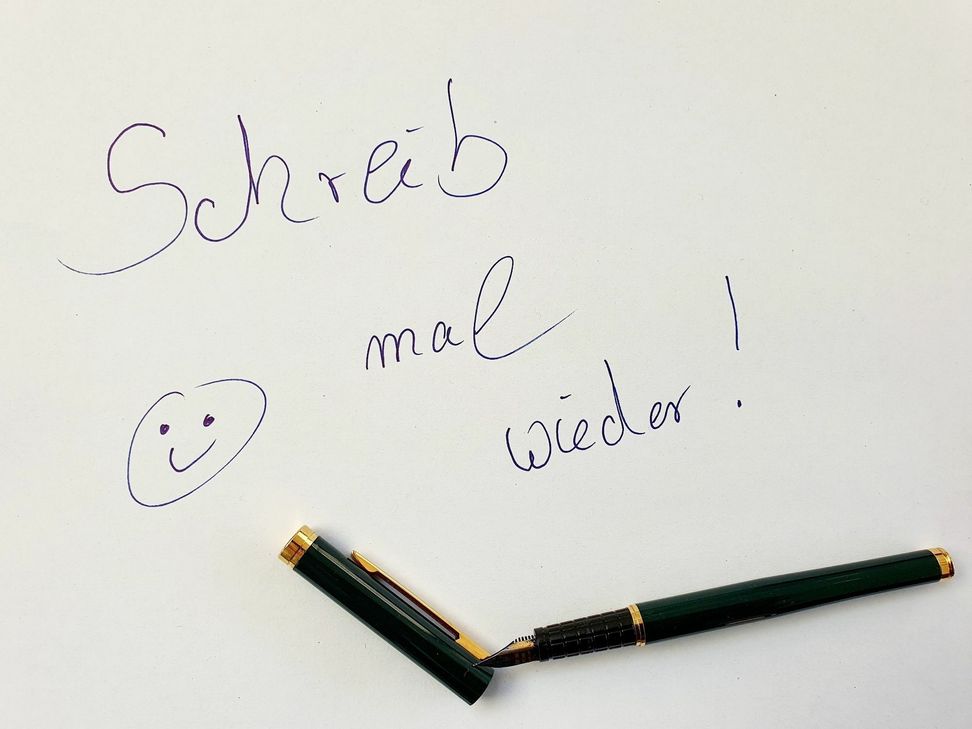 Schreib
mal
wieder!